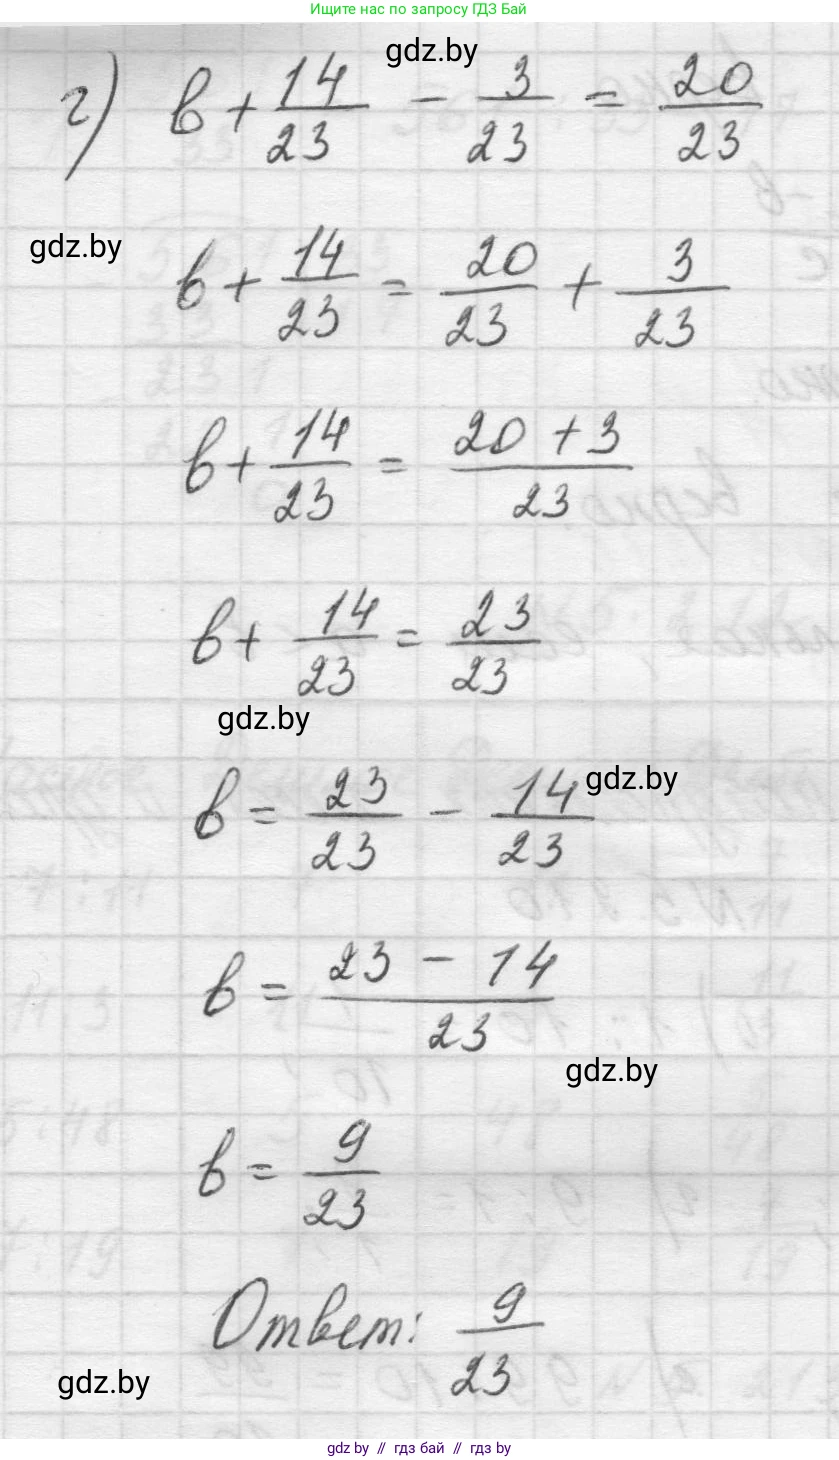 Ищите нас по запросу ГДЗ Бай
gdz.by
г) b + 14/23 - 3/23 = 20/23
gdz.by
b + 14/23 = 20/23 + 3/23
b + 14/23 = 20 + 3/23
b + 14/23 = 23/23
gdz.by
b = 23/23 - 14/23
gdz.by
b = 23 - 14/23
gdz.by
b = 9/23
Ответ: 9/23
gdz.by
gdz.by // гдз бай // gdz.by